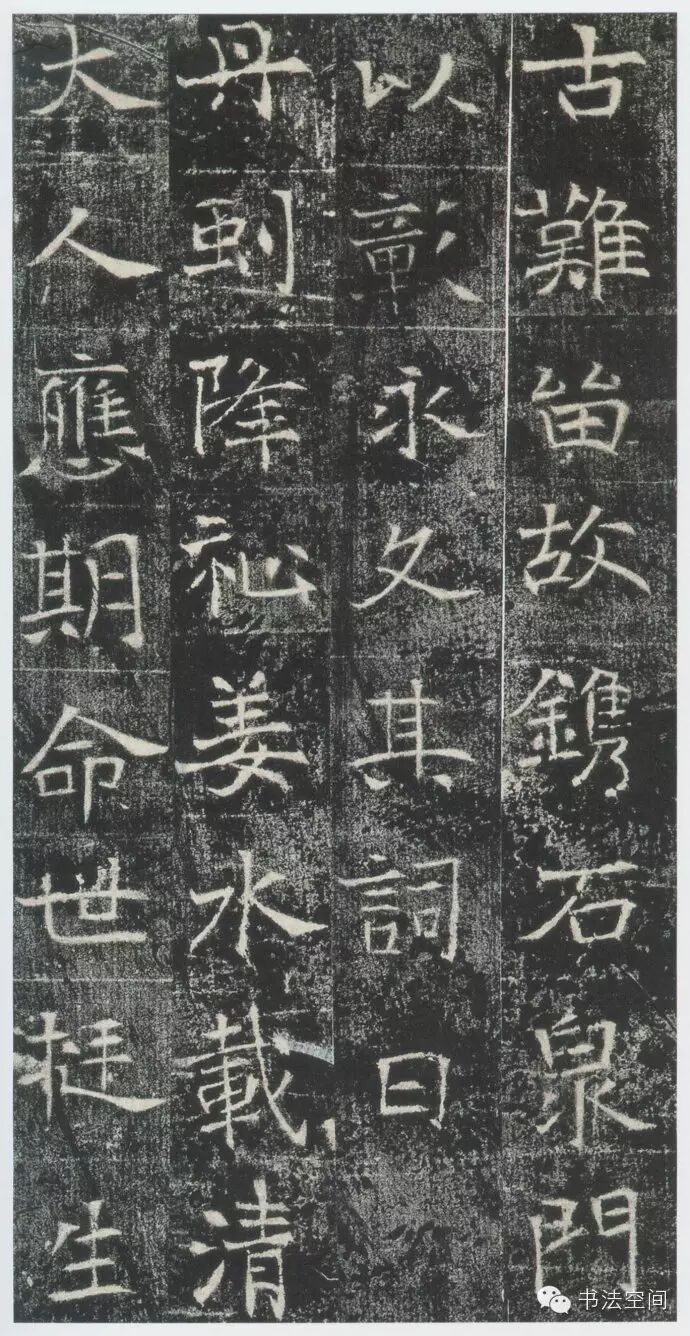 古難留故鐫石泉門
以彰永久其詞曰
丹虯降祉姜水載清
大人應期命世挺生
书法空间